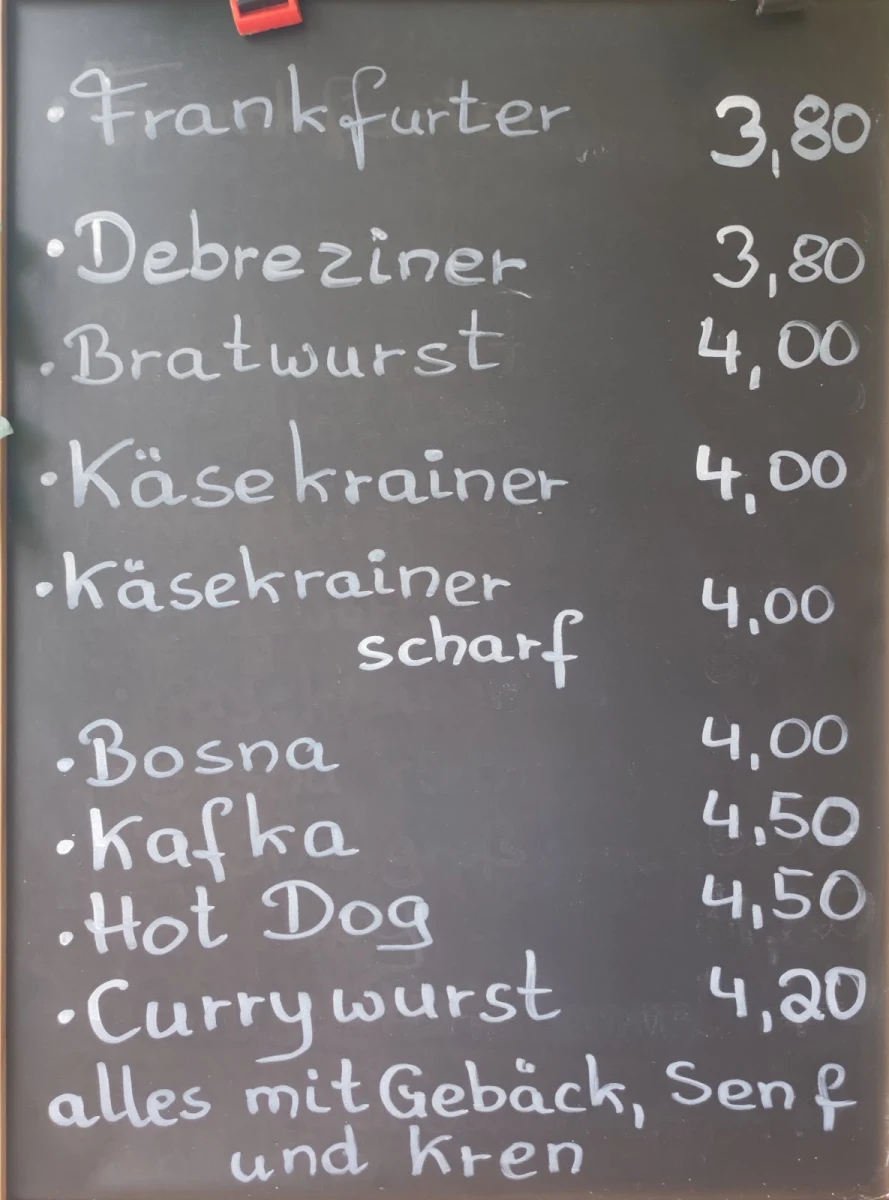 · Frankfurter 3,80
· Debreziner 3,80
· Bratwurst 4,00
· Käsekrainer 4,00
· Käsekrainer
scharf 4,00
· Bosna 4,00
· Kafka 4,50
· Hot Dog 4,50
· Currywurst 4,20
alles mit Gebäck, Senf
und Kren